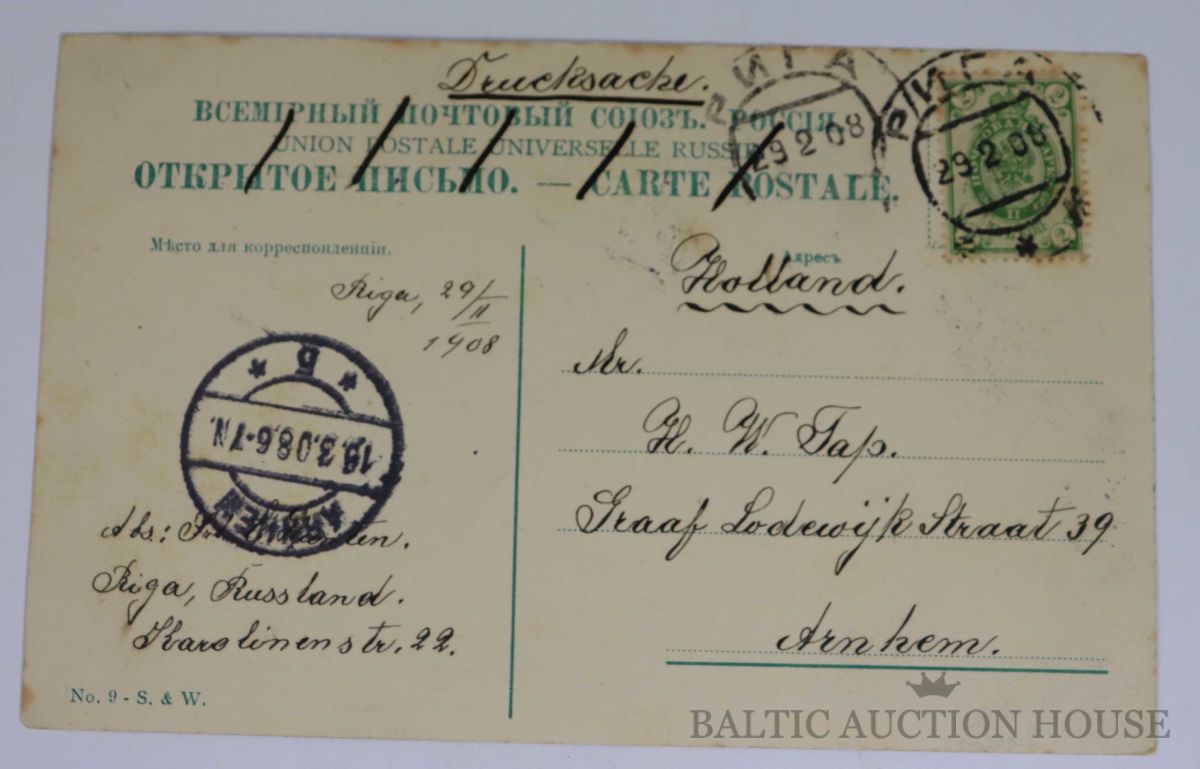 Drucksache.
ВСЕМІРНЫЙ ПОЧТОВЫЙ СОЮЗЪ. РОССІЯ.
UNION POSTALE UNIVERSELLE RUSSIE
ОТКРЫТОЕ ПИСЬМО. — CARTE POSTALE.
РИГА
29 2 08
РИГА
29 2 08
Мѣсто для корреспонденціи.
Адресъ
Riga, 29/II
1908
Holland.
Mr.
H. W. Tap.
Graaf Lodewijk Straat 39
Arnhem.
ARNHEM
19.3.08.6-7N.
5
Abs:
Riga, Russland.
Karolinenstr. 22.
No. 9 - S. & W.
BALTIC AUCTION HOUSE